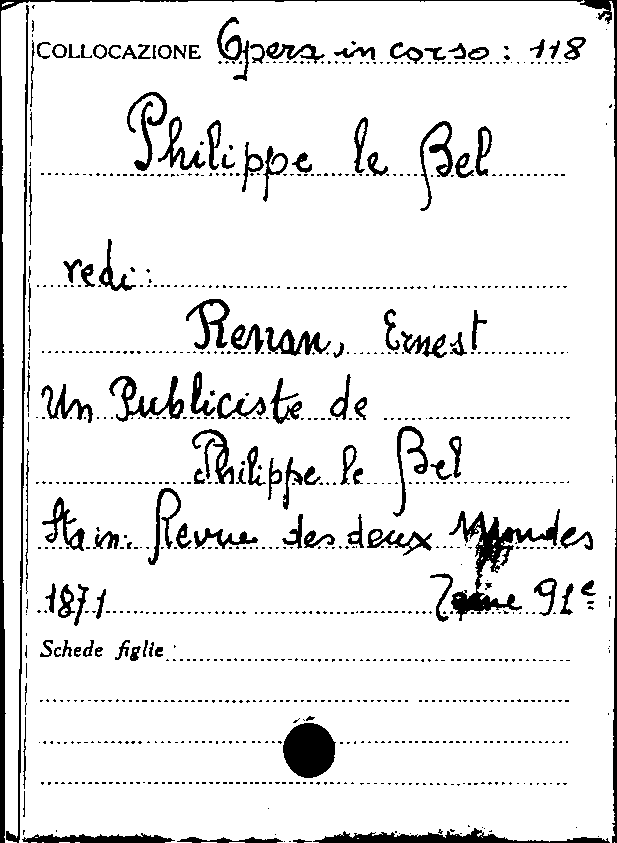 COLLOCAZIONE Opera in corso : 118
Philippe le Bel
vedi :
Renan, Ernest
Un Publiciste de
Philippe le Bel
Sta in. Revue des deux Mondes
1871 Tome 91e
Schede figlie